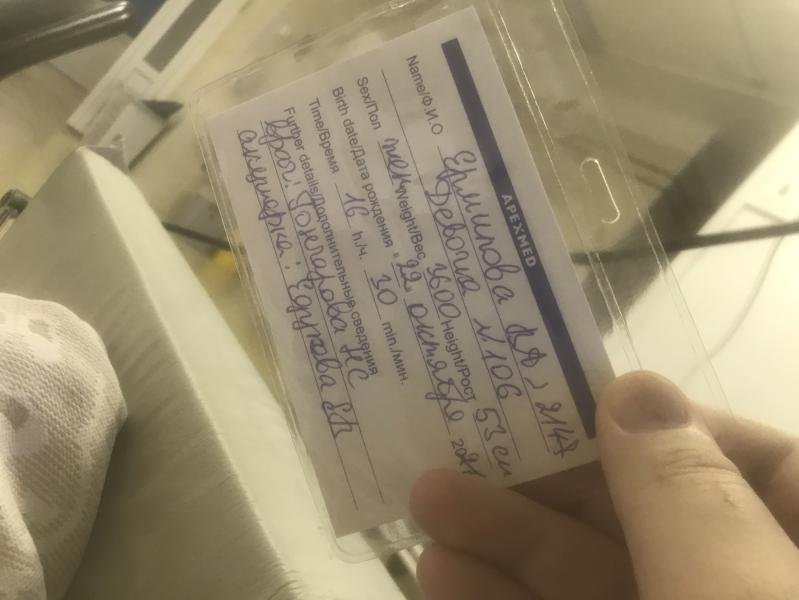 APEXMED
Name/Ф.И.О Ермилова
Девочка №106
Sex/Пол жен Weight/Вес 3600 Height/Рост 53 см
Birth date/Дата рождения 22 октября 2021
Time/Время 16 h/ч. 30 min./мин.
Further details/Дополнительные сведения
врач: Гончарова НС
акушерка: